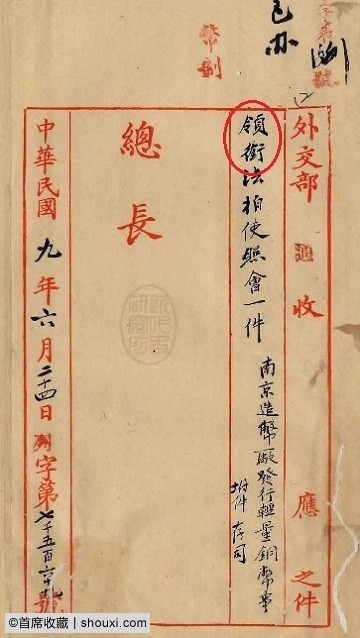 字第
號
幣制
已办
外交部
收
應
之件
領銜法柏使照會一件
南京造幣廠發行輕量銅幣事
附件存司
總長
中華民國九年六月二十四日
字第七千五百六十九號
@首席收藏 | shouxi.com